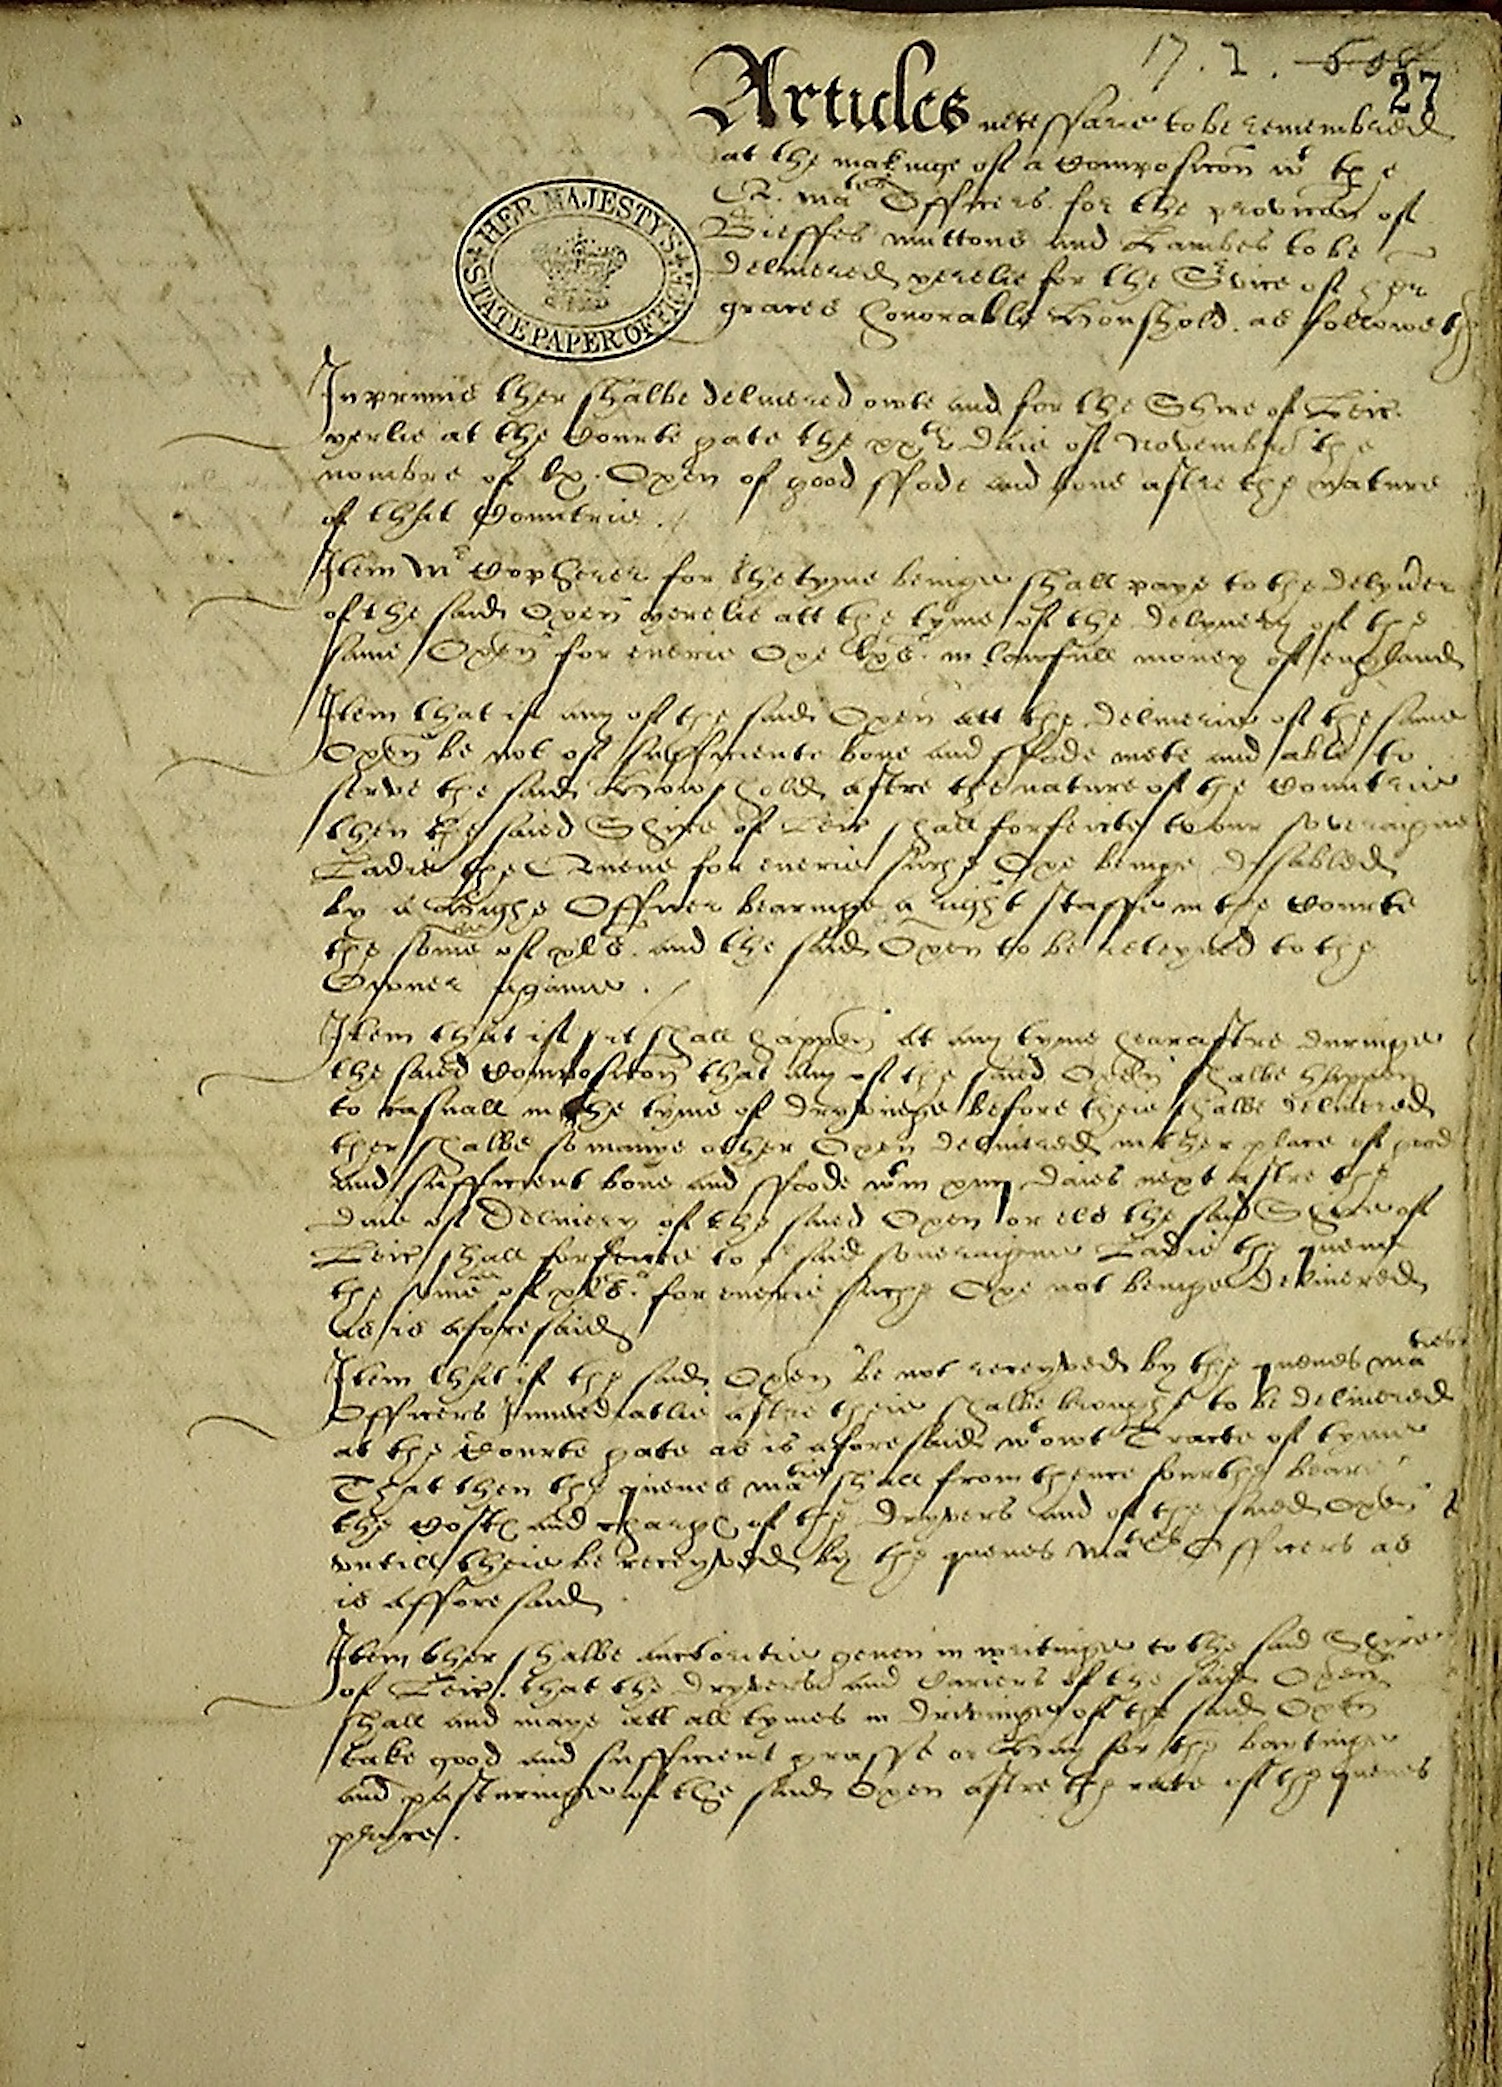 17. 1. 
27
Articles necessarie to be remembred
at the makinge of a Composicon wt the
Q. maties Officers for the provicon of
Bieffes muttons and Lambes to be
delivered yerelie for the Svice of her
graces honorable Houshold. as followeth
HER MAJESTY'S STATE PAPER OFFICE
Inprimis ther shalbe delivered owte and for the Shire of Leic.
yerlie at the Courte gate the xxth daie of November the
nombre of lx. Oxen of good ffode and bone aftre the nature
of that Countrie.
Item Mr Copherer for the tyme beinge shall paye to the delyver
of the said Oxen yerelie att the tyme of the delyvery of the
same Oxen for everie Oxe lxs. in lawfull money of england
Item that if any of the said Oxen att the deliverie of the same
Oxen be not of sufficiente bone and ffode mete and able to
serve the said Howshold aftre the nature of the Countrie
then the saied Shire of Leic shall forfeicte to our soveraigne
Ladie the Quene for everie suche Oxe beinge disabled
by a Highe Officer bearinge a right staffe in the Courte
the some of xls. and the said Oxen to be reteyned to the
Owner againe.
Item that if it shall happen at any tyme hearaftre duringe
the saied Composicon that any of the saied Oxen shalbe happen
to casuall in the tyme of dryvinge before theie shalbe delivered
ther shalbe so manye other Oxen delivered in ther place of good
and sufficient bone and ffoode wtin xiiij daies next aftre the
daie of Delivery of the saied Oxen or els the said Shire of
Leic shall forfeicte to or said soveraigne Ladie the quene
the some of xls. for everie suche Oxe not beinge delivered
as is aforesaid
Item that if the said Oxen be not receyved by the quenes maties
Officers Immediatlie aftre theie shalbe brought to be delivered
at the Courte gate as is aforesaid wtowt Tracte of tyme
That then the quenes matie shall from thence fourthe beare
the Costes and charges of the dryvers and of the saied Oxen
untill theie be receyved by the quenes maties Officers as
is afforesaid
Item ther shalbe auctoritie geven in writinge to the said Shire
of Leic. that the dryvers and Cariers of the said Oxen
shall and maye att all tymes in drivinge of the said Oxen
take good and sufficient grasse or Hay for the baytinge
and pasturinge of the said Oxen aftre the rate of the quenes